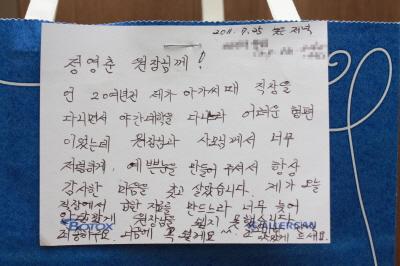 2011. 7. 25 저녁
정영춘 원장님께!
언 20여년전 제가 아가씨때 직장을
다니면서 야간대학을 다니라 어려운 형편
이었는데 원장님과 사모님께서 너무
저렴하게, 예쁜눈을 만들어 주셔서 항상
감사한 마음을 갖고 살았습니다. 제가 오늘
직장에서 급한 자료를 만드느라 너무 늦어
원장님을 뵙지 못했습니다
BOTOX ALLERGAN
죄송하구요. 다음에 꼭 뵐게요^^ 드세요.